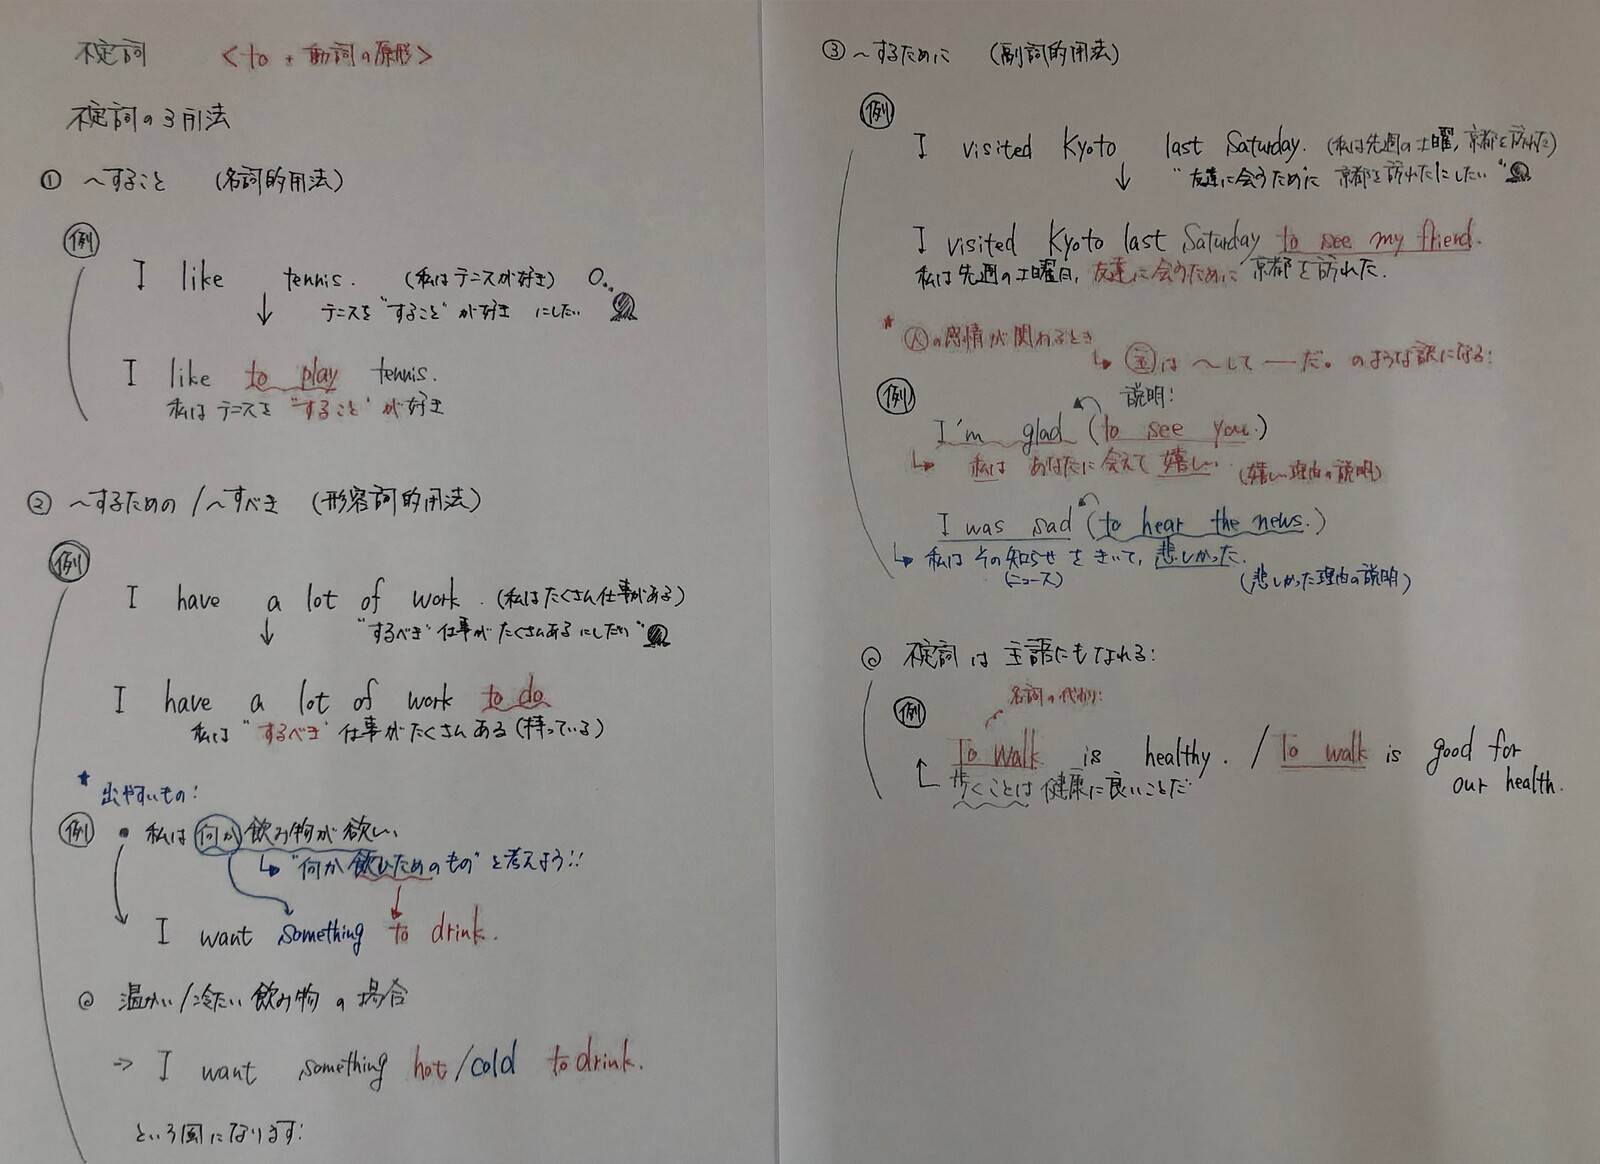 不定詞 <to + 動詞の原形>
不定詞の3用法
① 〜すること (名詞的用法)
例
I like tennis. (私はテニスが好き)
↓ テニスを"すること"が好き にしたい
I like to play tennis.
私はテニスを"すること"が好き
② 〜するための/〜すべき (形容詞的用法)
例
I have a lot of work. (私はたくさん仕事がある)
↓ "するべき"仕事がたくさんあるにしたい"
I have a lot of work to do
私は"するべき"仕事がたくさんある(持っている)
★ 出やすいもの!
例 • 私は何か飲み物が欲しい
↳ "何か飲むためのもの"と考えよう!!
I want something to drink.
◎ 温かい/冷たい飲み物の場合
⇒ I want something hot/cold to drink.
という風になります!
③ 〜するために (副詞的用法)
例
I visited Kyoto last Saturday. (私は先週の土曜,京都を訪れた)
↓ "友達に会うために 京都を訪れたにしたい"
I visited Kyoto last Saturday to see my friend.
私は先週の土曜日,友達に会うために京都を訪れた.
★ 人の感情が関わるとき
↳ 主は 〜して ―だ。のような訳になる!
例
説明!
I'm glad (to see you.)
↳ 私は あなたに会えて嬉しい. (嬉しい理由の説明)
I was sad (to hear the news.)
↳ 私は その知らせをきいて,悲しかった.
(ニュース) (悲しかった理由の説明)
◎ 不定詞は主語にもなれる!
名詞の代わり!
例
To walk is healthy. / To walk is good for
our health.
歩くことは健康に良いことだ